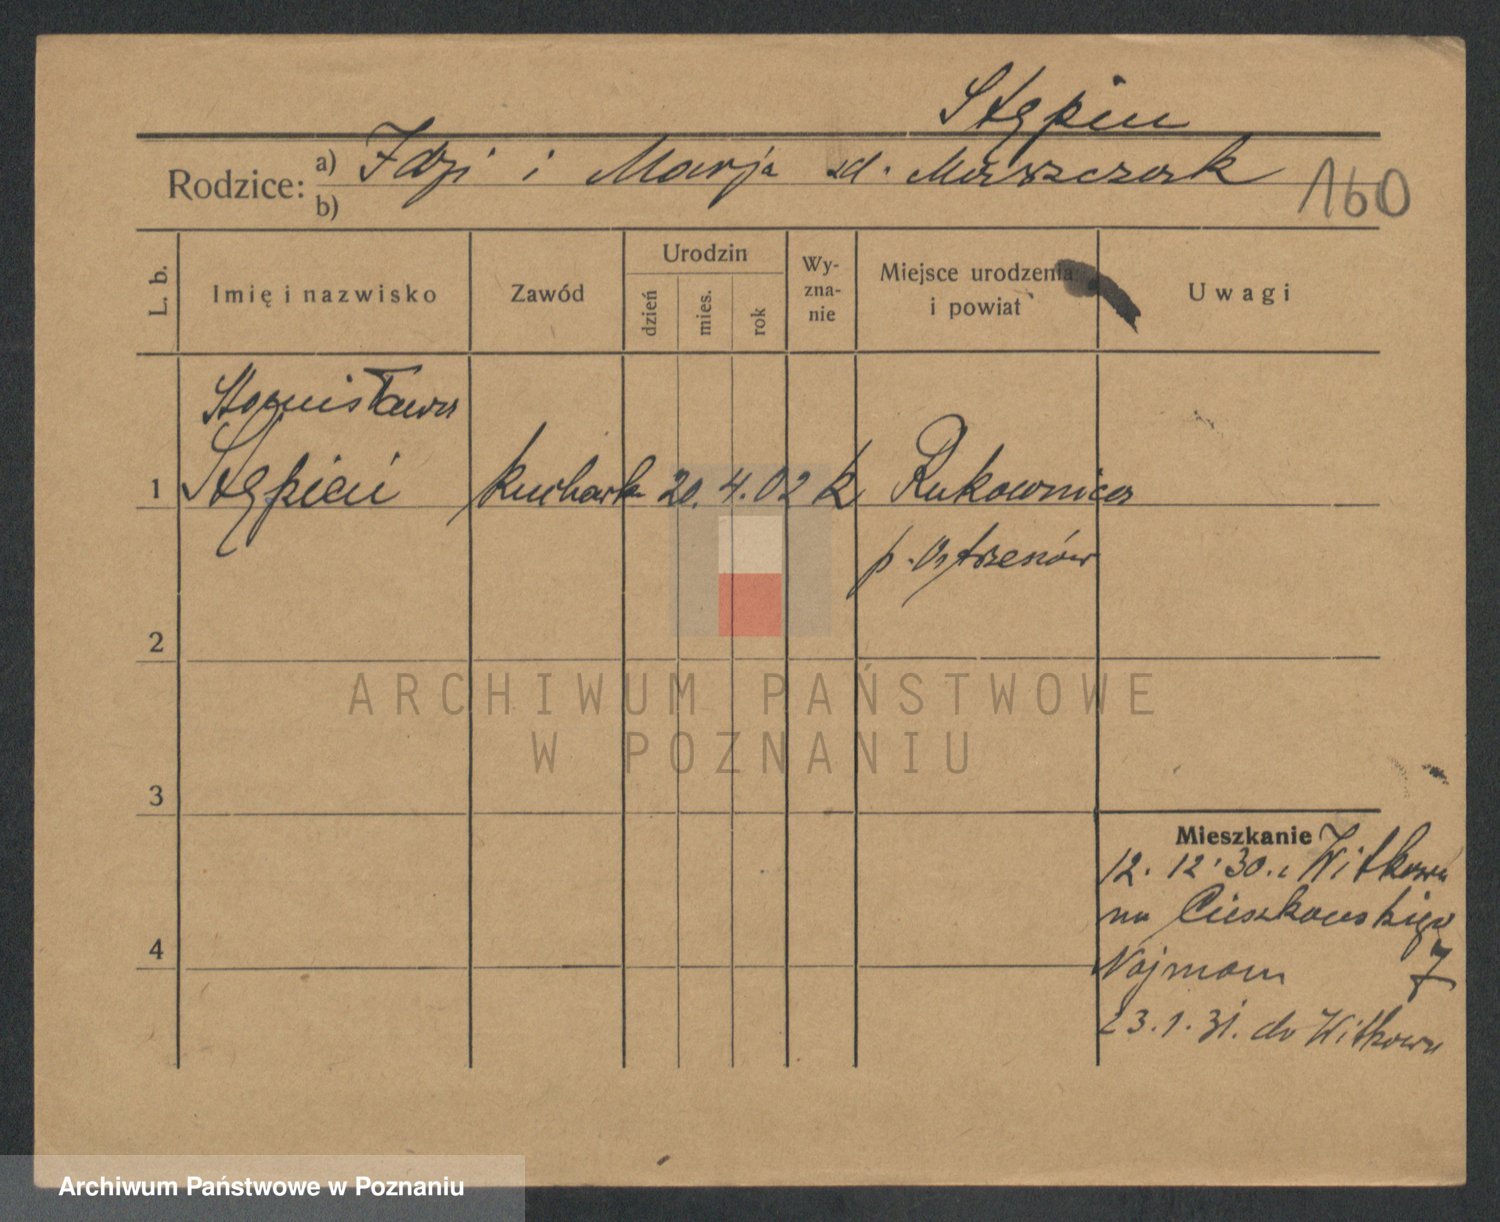 Stępień
Rodzice: a) Idzi i Marja zd. Marszczak
b)
160
L. b.
Imię i nazwisko
Zawód
Urodzin
dzień
mies.
rok
Wy-
zna-
nie
Miejsce urodzenia
i powiat
Uwagi
Stanisława
1 Stępień kuchark 20. 4. 02 k Rukownica
p. Ostrzeszów
2
ARCHIWUM PAŃSTWOWE
W POZNANIU
3
Mieszkanie
12. 12. 30. z Witkowa
na Cieszkowskiego
4
Najman 7
23. 1. 31. do Witkowa
Archiwum Państwowe w Poznaniu